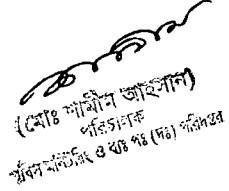 (মোঃ শামীম আহসান)
পরিচালক
পুলিশ মনিটরিং ও ব্যঃ পঃ (দাঃ) পরিদপ্তর